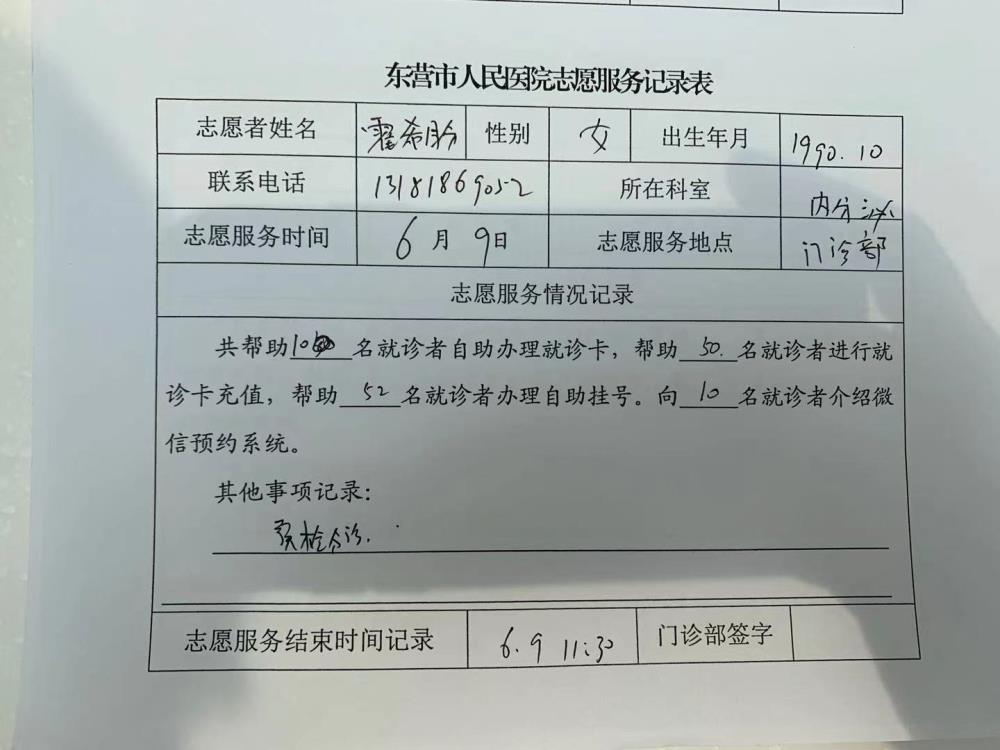 东营市人民医院志愿服务记录表
志愿者姓名 霍希 性别 女 出生年月 1990.10
联系电话 13181869052 所在科室 内分泌
志愿服务时间 6月9日 志愿服务地点 门诊部
志愿服务情况记录
共帮助10名就诊者自助办理就诊卡，帮助50.名就诊者进行就
诊卡充值，帮助52名就诊者办理自助挂号。向10名就诊者介绍微
信预约系统。
其他事项记录：
预检分诊.
志愿服务结束时间记录 6.9 11:30 门诊部签字